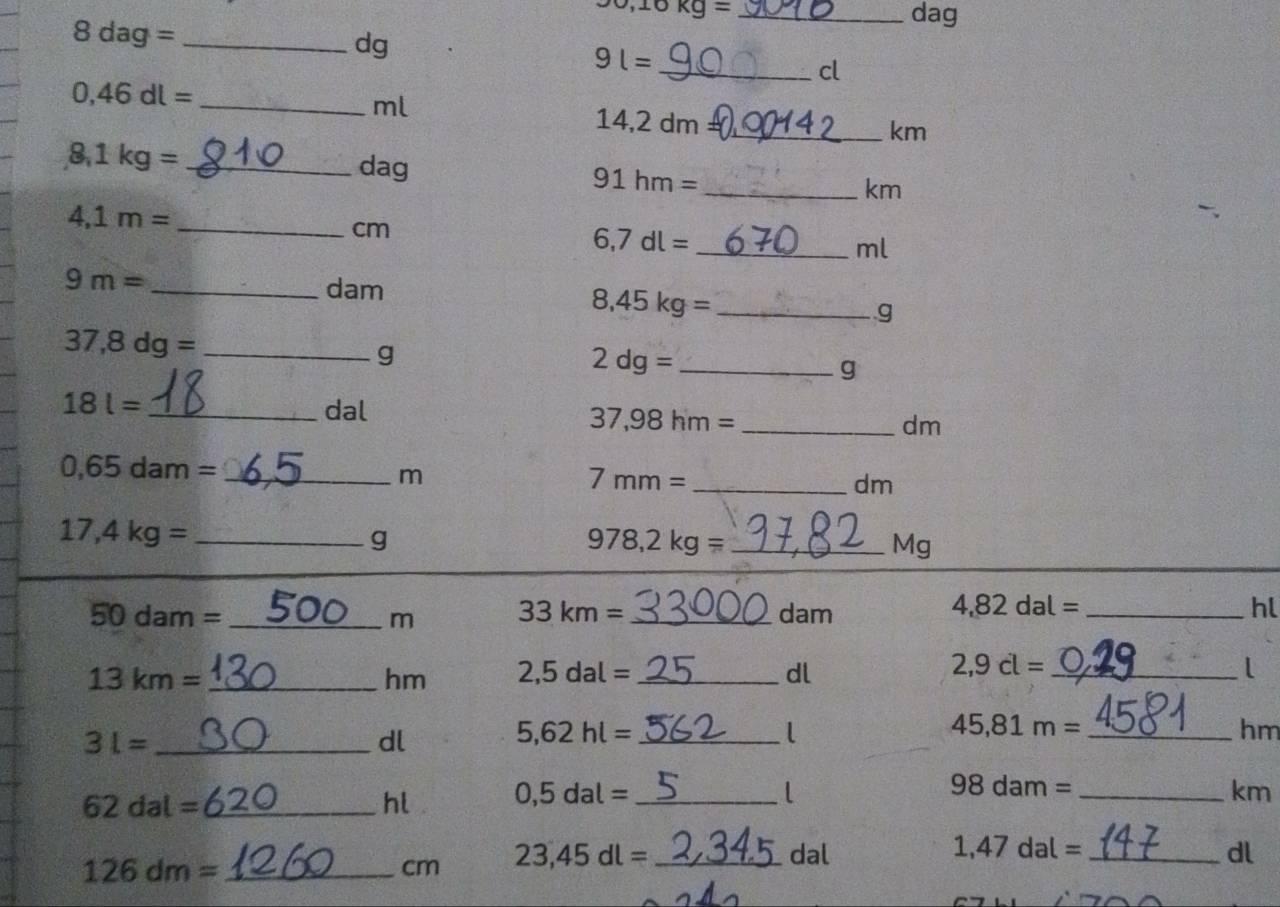 8 dag = ________ dg
0,46 dl = ________ ml
8,1 kg = 810 dag
4,1 m = ________ cm
9 m = ________ dam
37,8 dg = ________ g
18 l = 18 dal
0,65 dam = 6,5 m
17,4 kg = ________ g
kg = 9016 dag
9 l = 90 cl
14,2 dm = 0,00142 km
91 hm = ________ km
6,7 dl = 670 ml
8,45 kg = ________ g
2 dg = ________ g
37,98 hm = ________ dm
7 mm = ________ dm
978,2 kg = 97,82 Mg
50 dam = 500 m
13 km = 130 hm
3 l = 30 dl
62 dal = 620 hl
126 dm = 1260 cm
33 km = 33000 dam
2,5 dal = 25 dl
5,62 hl = 562 l
0,5 dal = 5 l
23,45 dl = 2,345 dal
4,82 dal = ________ hl
2,9 cl = 0,29 l
45,81 m = 4581 hm
98 dam = ________ km
1,47 dal = 147 dl